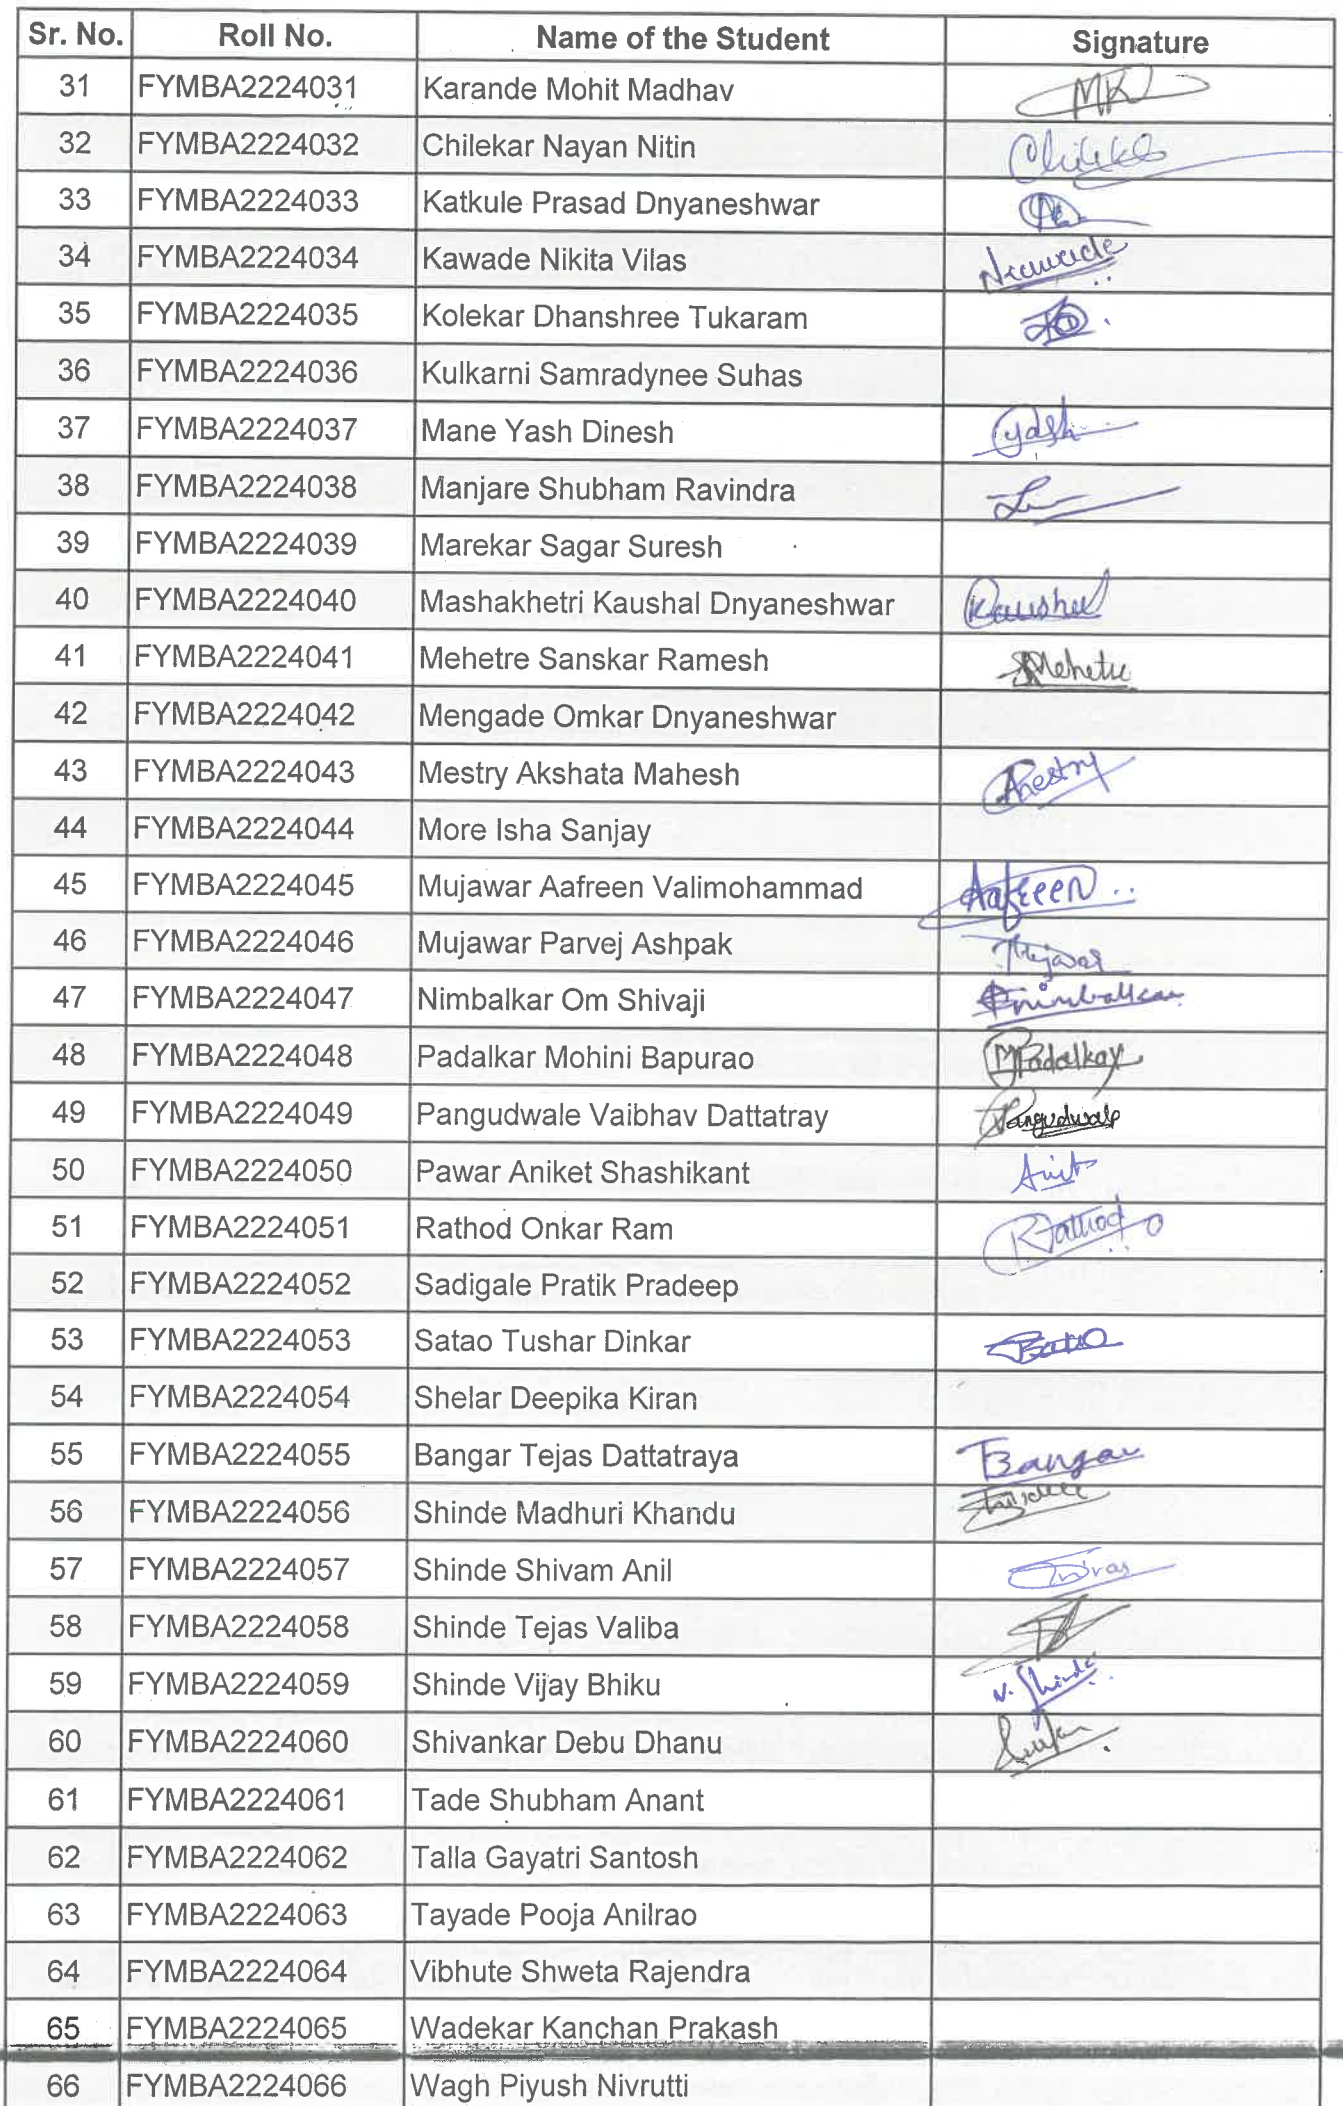 Sr. No. Roll No. Name of the Student Signature
31 FYMBA2224031 Karande Mohit Madhav MK
32 FYMBA2224032 Chilekar Nayan Nitin
33 FYMBA2224033 Katkule Prasad Dnyaneshwar
34 FYMBA2224034 Kawade Nikita Vilas
35 FYMBA2224035 Kolekar Dhanshree Tukaram
36 FYMBA2224036 Kulkarni Samradynee Suhas
37 FYMBA2224037 Mane Yash Dinesh Yash
38 FYMBA2224038 Manjare Shubham Ravindra
39 FYMBA2224039 Marekar Sagar Suresh
40 FYMBA2224040 Mashakhetri Kaushal Dnyaneshwar
41 FYMBA2224041 Mehetre Sanskar Ramesh
42 FYMBA2224042 Mengade Omkar Dnyaneshwar
43 FYMBA2224043 Mestry Akshata Mahesh
44 FYMBA2224044 More Isha Sanjay
45 FYMBA2224045 Mujawar Aafreen Valimohammad Aafreen
46 FYMBA2224046 Mujawar Parvej Ashpak
47 FYMBA2224047 Nimbalkar Om Shivaji
48 FYMBA2224048 Padalkar Mohini Bapurao MPadalkar
49 FYMBA2224049 Pangudwale Vaibhav Dattatray Pangudwale
50 FYMBA2224050 Pawar Aniket Shashikant
51 FYMBA2224051 Rathod Onkar Ram Rathod
52 FYMBA2224052 Sadigale Pratik Pradeep
53 FYMBA2224053 Satao Tushar Dinkar
54 FYMBA2224054 Shelar Deepika Kiran
55 FYMBA2224055 Bangar Tejas Dattatraya TBangar
56 FYMBA2224056 Shinde Madhuri Khandu
57 FYMBA2224057 Shinde Shivam Anil
58 FYMBA2224058 Shinde Tejas Valiba
59 FYMBA2224059 Shinde Vijay Bhiku V. Shinde
60 FYMBA2224060 Shivankar Debu Dhanu
61 FYMBA2224061 Tade Shubham Anant
62 FYMBA2224062 Talla Gayatri Santosh
63 FYMBA2224063 Tayade Pooja Anilrao
64 FYMBA2224064 Vibhute Shweta Rajendra
65 FYMBA2224065 Wadekar Kanchan Prakash
66 FYMBA2224066 Wagh Piyush Nivrutti